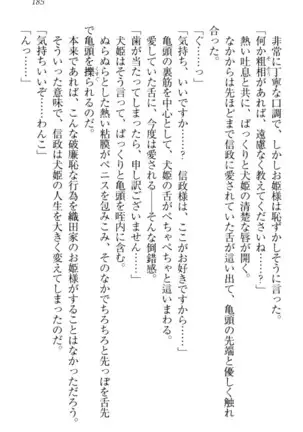 185
非常に丁寧な口調で、しかしお姫様は恥ずかしそうに言った。
「何か粗相があれば、遠慮なく教えてくださいね……？」
熱い吐息と共に、ぱっくりと犬姫の清楚な唇が開く。
なかからは先ほどまで信政に愛されていた舌が這い出て、亀頭の先端と優しく触れ合った。
「くっ…っ」
「気持ち、いいですか…？　信政様は、ここがお好きですから…」
亀頭の裏筋を中心として、犬姫の舌がぺちゃぺちゃと這いまわる。
愛していた舌に、今度は愛される――そんな倒錯感。
「歯が当たってしまえば、申し訳ございません……」
犬姫はそう言って、ぱっくりと亀頭を咥内に含む。
ぬらぬらとした熱い粘膜がペニスを包みこみ、そのなかでちろちろと先っぽを舌先で亀頭を擽られるのだ。
本来であれば、こんな破廉恥な行為を織田家のお姫様がすることはなかっただろう。
そういった意味で、信政は犬姫の人生を大きく変えてしまったのだ。
「気持ちいいぞ……わんこ」
「んっ……」